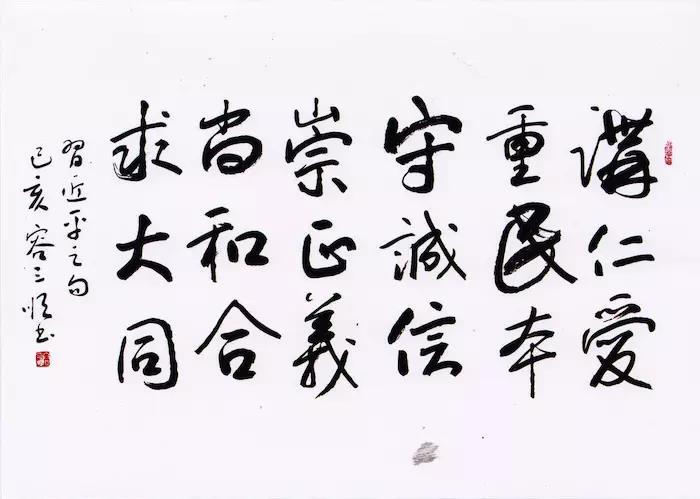 講仁愛
重民本
守誠信
崇正義
尚和合
求大同
習近平之句
己亥容三順书